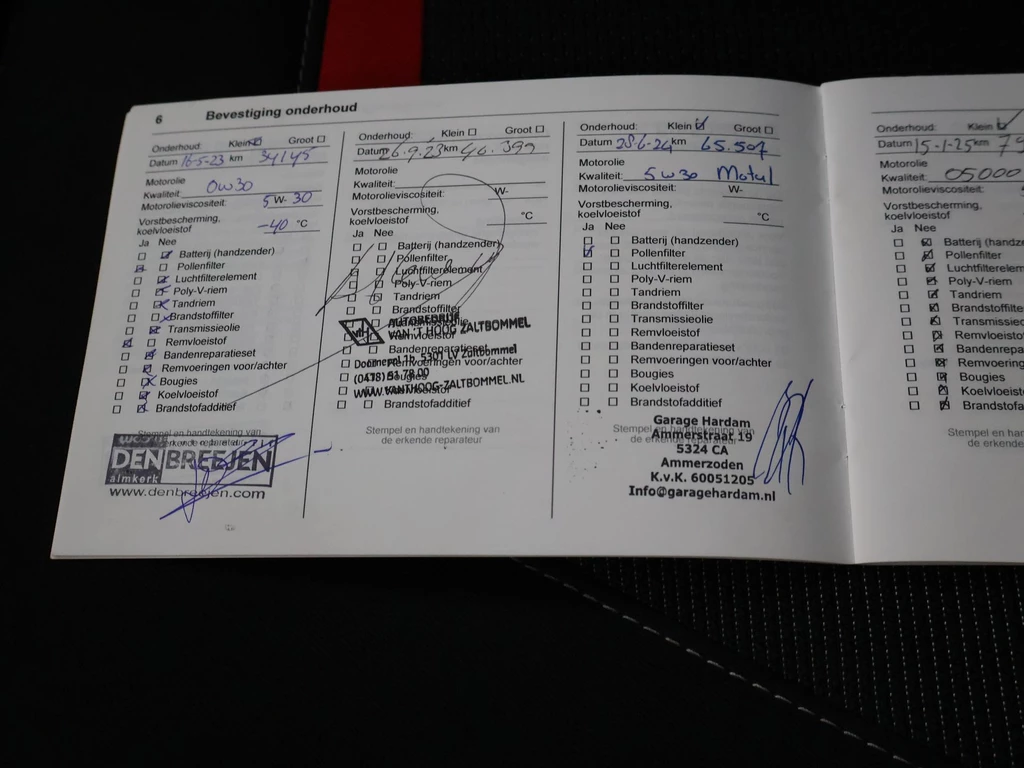 6 Bevestiging onderhoud
Onderhoud: Klein Groot
Datum 16-5-23 km 34145
Motorolie
Kwaliteit 0w30
Motorolieviscositeit: 5 W- 30
Vorstbescherming,
koelvloeistof -40 °C
Ja Nee
Batterij (handzender)
Pollenfilter
Luchtfilterelement
Poly-V-riem
Tandriem
Brandstoffilter
Transmissieolie
Remvloeistof
Bandenreparatieset
Remvoeringen voor/achter
Bougies
Koelvloeistof
Brandstofadditief
Stempel en handtekening van
de erkende reparateur
DENBREEJEN
almkerk
www.denbreejen.com
Onderhoud: Klein Groot
Datum 26.9.23 km 46.399
Motorolie
Kwaliteit
Motorolieviscositeit: W-
Vorstbescherming,
koelvloeistof °C
Ja Nee
Batterij (handzender)
Pollenfilter
Luchtfilterelement
Poly-V-riem
Tandriem
Brandstoffilter
Transmissieolie
Remvloeistof
Bandenreparatieset
Remvoeringen voor/achter
Bougies
Koelvloeistof
Brandstofadditief
AUTOBEDRIJF
VAN 'T HOOG ZALTBOMMEL
5301 LV Zaltbommel
(0418) 51 78 00
WWW.VANTHOOG-ZALTBOMMEL.NL
Stempel en handtekening van
de erkende reparateur
Onderhoud: Klein Groot
Datum 28-6-24 km 65.507
Motorolie
Kwaliteit 5w30 Motul
Motorolieviscositeit: W-
Vorstbescherming,
koelvloeistof °C
Ja Nee
Batterij (handzender)
Pollenfilter
Luchtfilterelement
Poly-V-riem
Tandriem
Brandstoffilter
Transmissieolie
Remvloeistof
Bandenreparatieset
Remvoeringen voor/achter
Bougies
Koelvloeistof
Brandstofadditief
Stempel en handtekening van
de erkende reparateur
Garage Hardam
Ammerstraat 19
5324 CA
Ammerzoden
K.v.K. 60051205
Info@garagehardam.nl
Onderhoud: Klein
Datum 15-1-25 km 79
Motorolie
Kwaliteit 05000
Motorolieviscositeit:
Vorstbescherming,
koelvloeistof
Ja Nee
Batterij (handze
Pollenfilter
Luchtfilterelem
Poly-V-riem
Tandriem
Brandstoffilte
Transmissieo
Remvloeistof
Bandenrepa
Remvoering
Bougies
Koelvloeist
Brandstofa
Stempel en han
de erkend